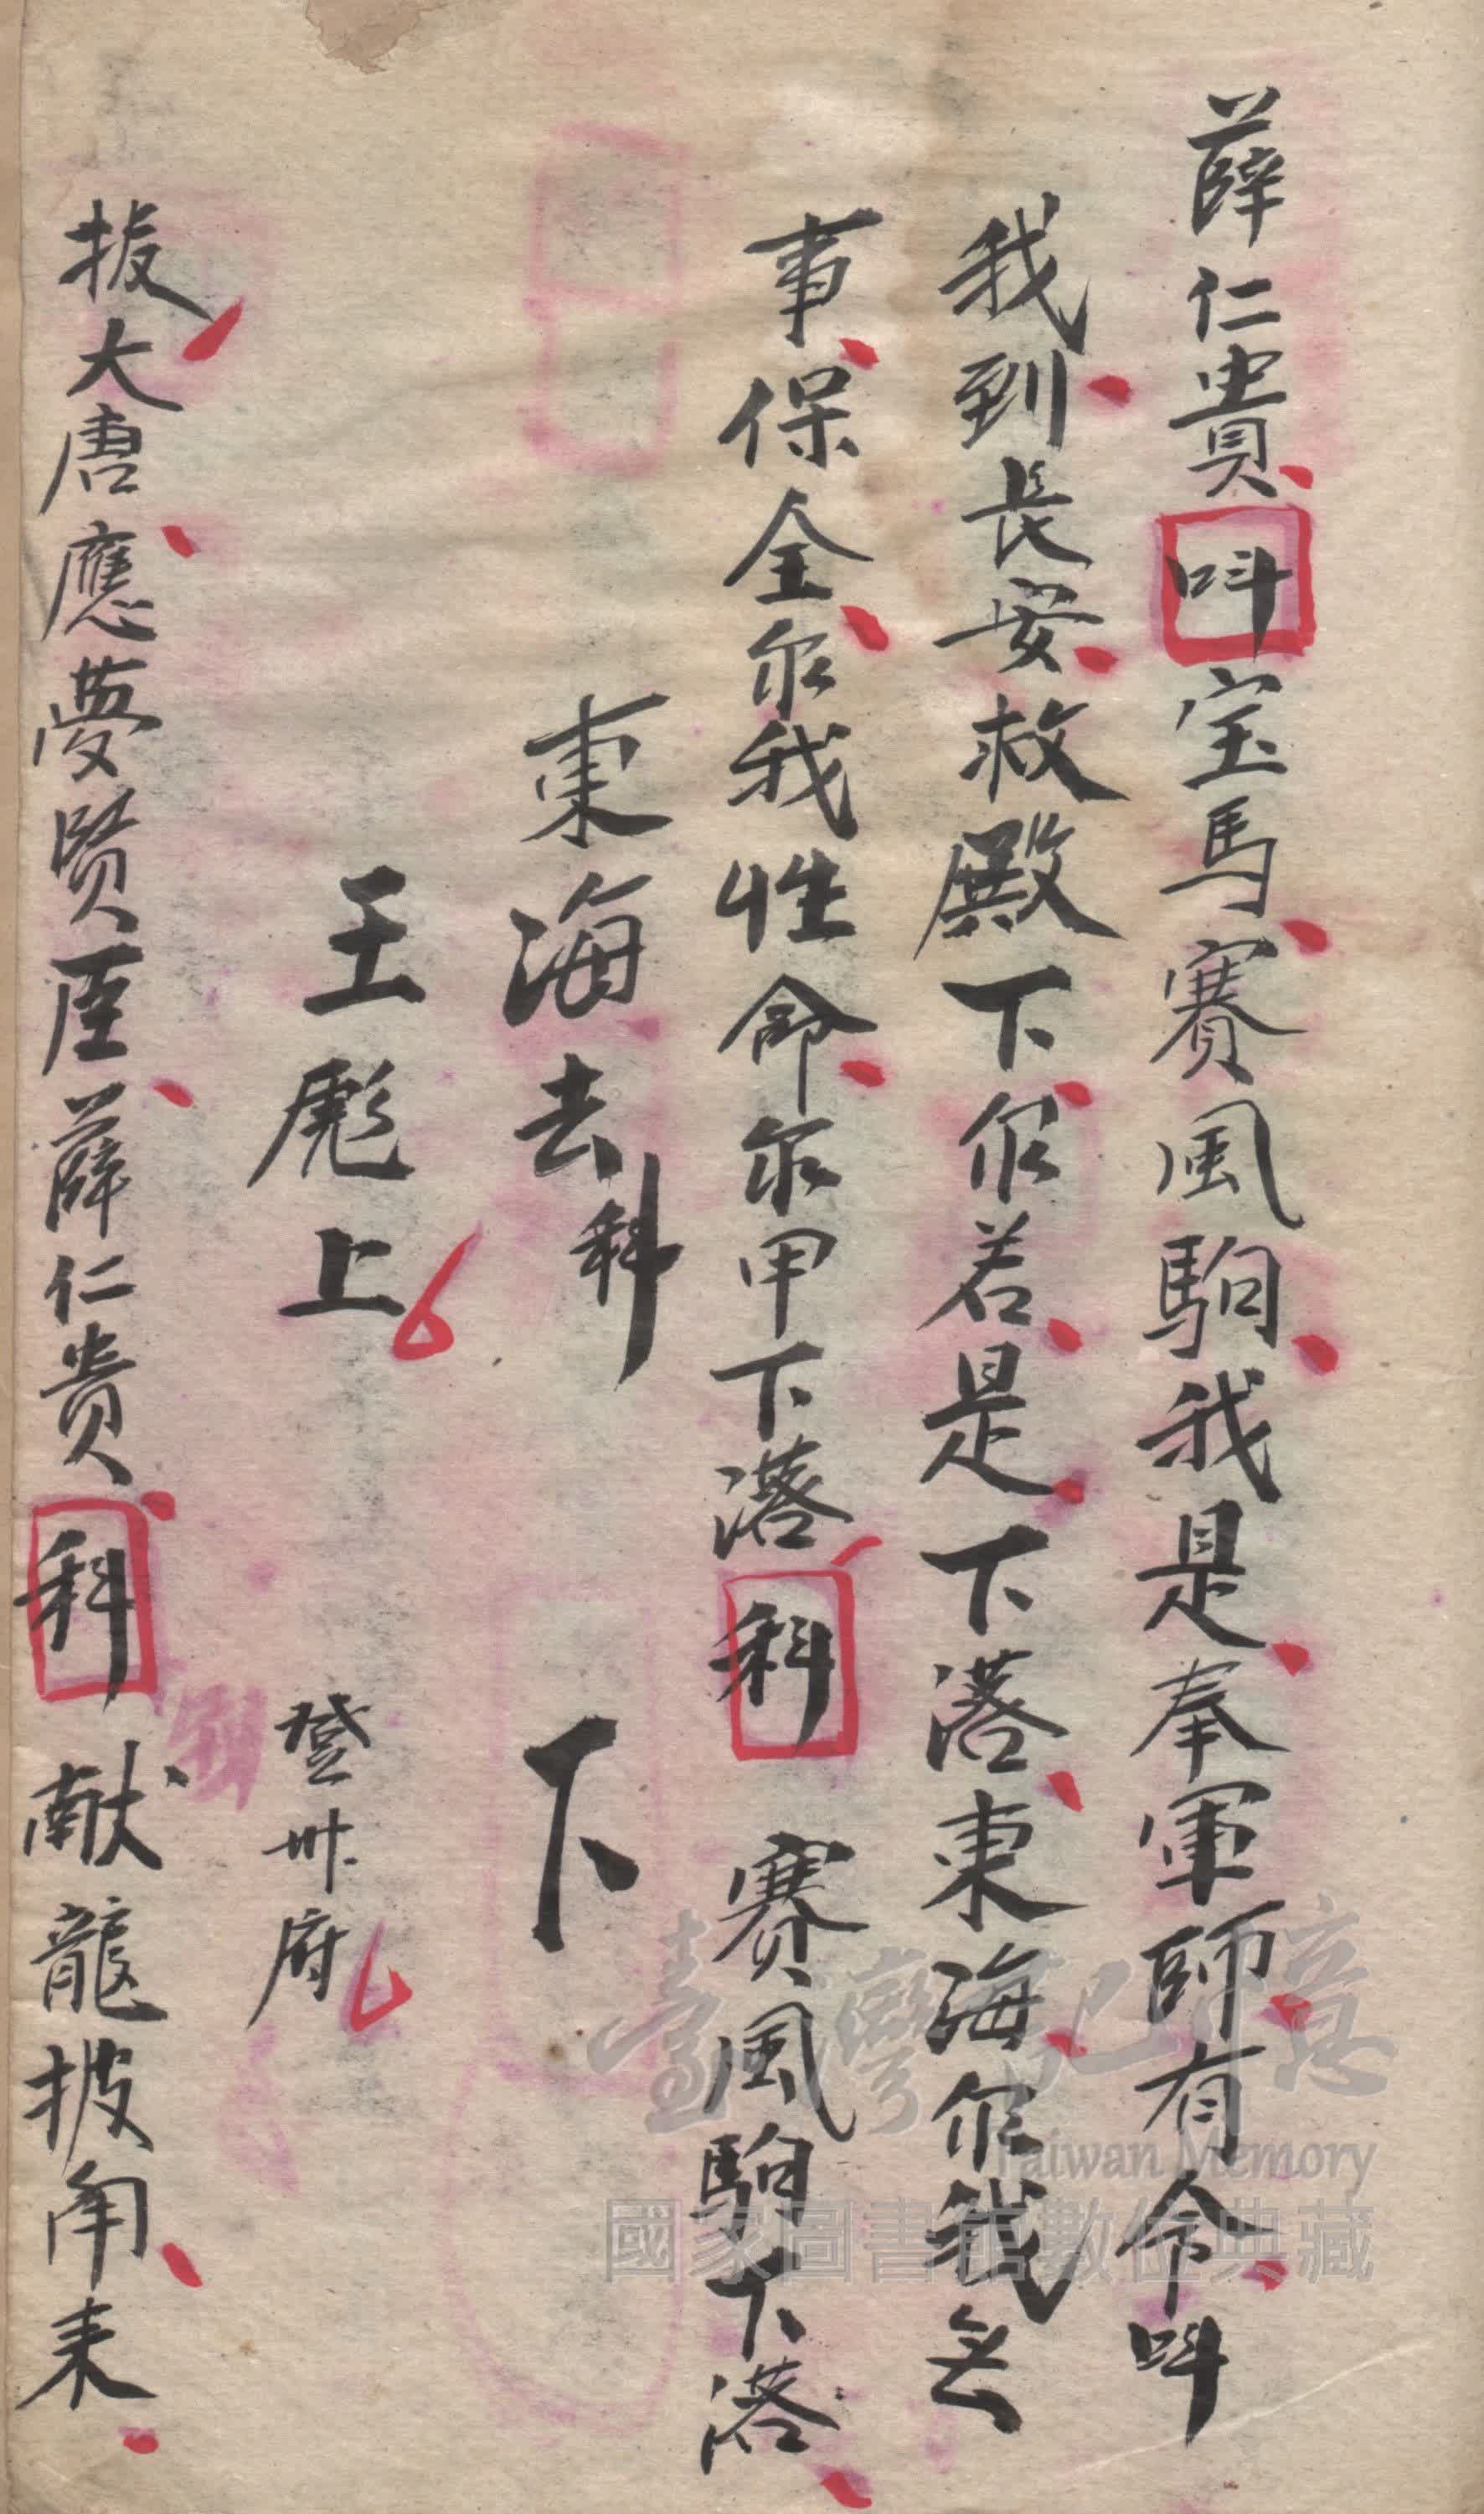 薛仁貴叫宝馬賽風駒我是奉軍師有令叫
我到長安救殿下你若是下落東海你我无
事保全尔我性命尔甲下落科賽風駒下落
東海去科 下
王彪上 登州府
拔大唐應夢賢臣薛仁贵科献龍披甪来
臺灣記憶
Taiwan Memory
國家圖書館數位典藏